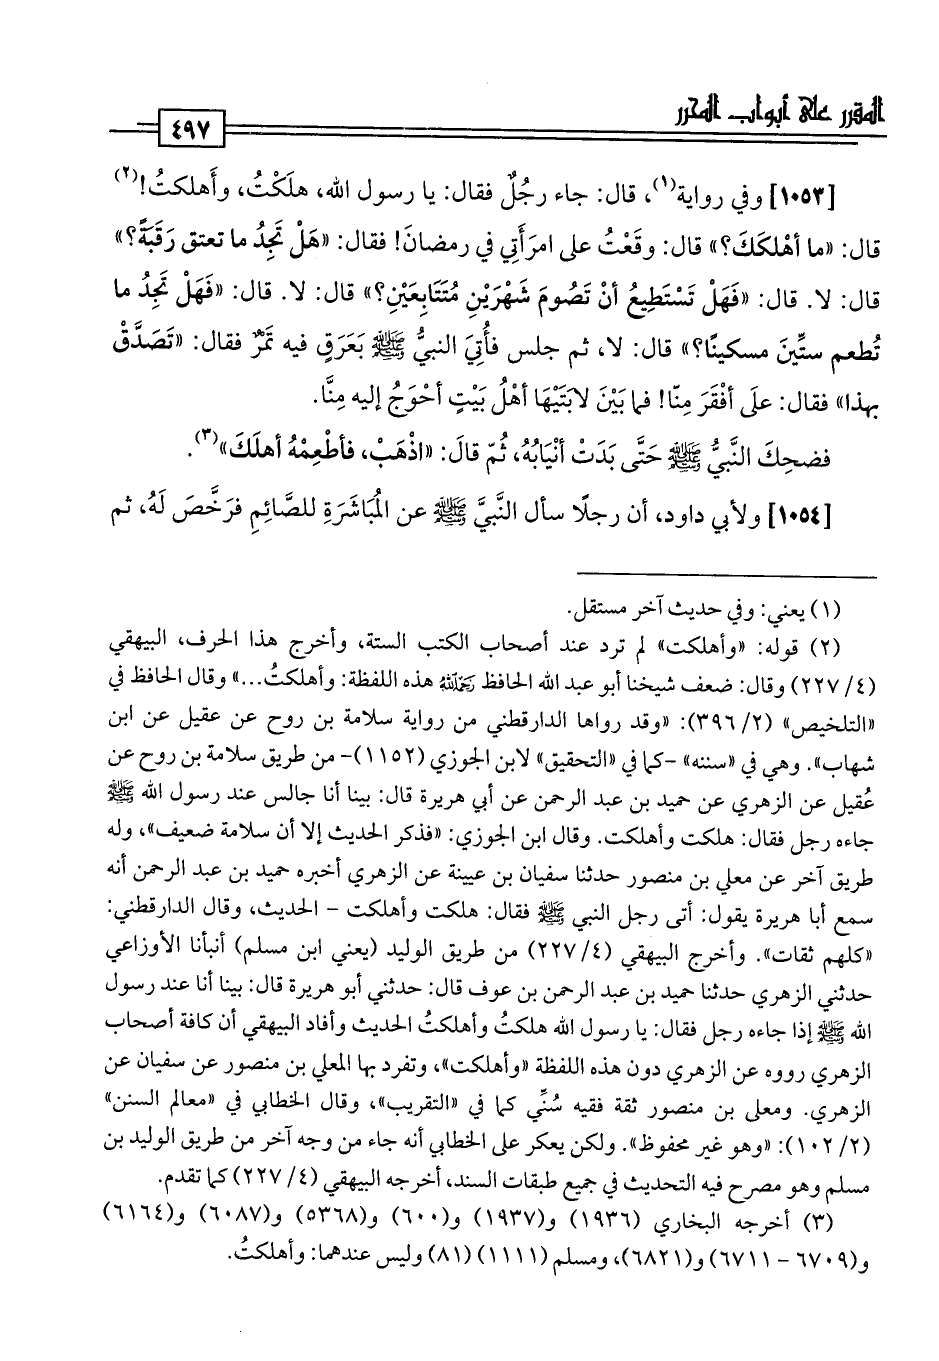 المقرر على أبواب المحرر
٤٩٧
[١٠٥٣] وفي رواية(١)، قال: جاء رجُلٌ فقال: يا رسول الله، هلَكْتُ، وأَهلكتُ!(٢)
قال: «ما أهْلكَكَ؟» قال: وقَعْتُ على امرَأتي في رمضانَ! فقال: «هَلْ تَجِدُ ما تعتق رَقَبَةً؟»
قال: لا. قال: «فَهَلْ تَسْتَطِيعُ أنْ تَصُومَ شَهْرَيْنِ مُتَتَابِعَيْنِ؟» قال: لا. قال: «فَهَلْ تَجِدُ ما
تُطعم ستِّينَ مسكينًا؟» قال: لا، ثم جلس فأُتِيَ النبيُّ ﷺ بعَرَقٍ فيه تَمْرٌ فقال: «تَصَدَّقْ
بهذا» فقال: علَى أفْقَرَ مِنّا! فما بَيْنَ لابَتَيْهَا أهْلُ بَيْتٍ أحْوَجُ إليه مِنَّا.
فضحِكَ النَّبيُّ ﷺ حَتَّى بَدَتْ أنْيَابُهُ، ثُمّ قالَ: «اذْهَبْ، فأطْعِمْهُ أهلَكَ»(٣).
[١٠٥٤] ولأبي داود، أن رجلًا سأل النبيَّ ﷺ عن المُبَاشَرَةِ للصَّائِمِ فرَخَّصَ لَهُ، ثم
(١) يعني: وفي حديث آخر مستقل.
(٢) قوله: «وأهلكت» لم ترد عند أصحاب الكتب الستة، وأخرج هذا الحرف، البيهقي
(٤/ ٢٢٧) وقال: ضعف شيخنا أبو عبد الله الحافظ رَحِمَهُ اللهُ هذه اللفظة: وأهلكتُ...» وقال الحافظ في
«التلخيص» (٢/ ٣٩٦): «وقد رواها الدارقطني من رواية سلامة بن روح عن عقيل عن ابن
شهاب». وهي في «سننه» -كما في «التحقيق» لابن الجوزي (١١٥٢)- من طريق سلامة بن روح عن
عُقيل عن الزهري عن حميد بن عبد الرحمن عن أبي هريرة قال: بينا أنا جالس عند رسول الله ﷺ
جاءه رجل فقال: هلكت وأهلكت. وقال ابن الجوزي: «فذكر الحديث إلا أن سلامة ضعيف»، وله
طريق آخر عن معلي بن منصور حدثنا سفيان بن عيينة عن الزهري أخبره حميد بن عبد الرحمن أنه
سمع أبا هريرة يقول: أتى رجل النبي ﷺ فقال: هلكت وأهلكت - الحديث، وقال الدارقطني:
«كلهم ثقات». وأخرج البيهقي (٤/ ٢٢٧) من طريق الوليد (يعني ابن مسلم) أنبأنا الأوزاعي
حدثني الزهري حدثنا حميد بن عبد الرحمن بن عوف قال: حدثني أبو هريرة قال: بينا أنا عند رسول
الله ﷺ إذا جاءه رجل فقال: يا رسول الله هلكتُ وأهلكتُ الحديث وأفاد البيهقي أن كافة أصحاب
الزهري رووه عن الزهري دون هذه اللفظة «وأهلكت»، وتفرد بها المعلي بن منصور عن سفيان عن
الزهري. ومعلى بن منصور ثقة فقيه سُنِّي كما في «التقريب»، وقال الخطابي في «معالم السنن»
(٢/ ١٠٢): «وهو غير محفوظ». ولكن يعكر على الخطابي أنه جاء من وجه آخر من طريق الوليد بن
مسلم وهو مصرح فيه التحديث في جميع طبقات السند، أخرجه البيهقي (٤/ ٢٢٧) كما تقدم.
(٣) أخرجه البخاري (١٩٣٦) و(١٩٣٧) و(٦٠٠) و(٥٣٦٨) و(٦٠٨٧) و(٦١٦٤)
و(٦٧٠٩ - ٦٧١١) و(٦٨٢١)، ومسلم (١١١١) (٨١) وليس عندهما: وأهلكتُ.